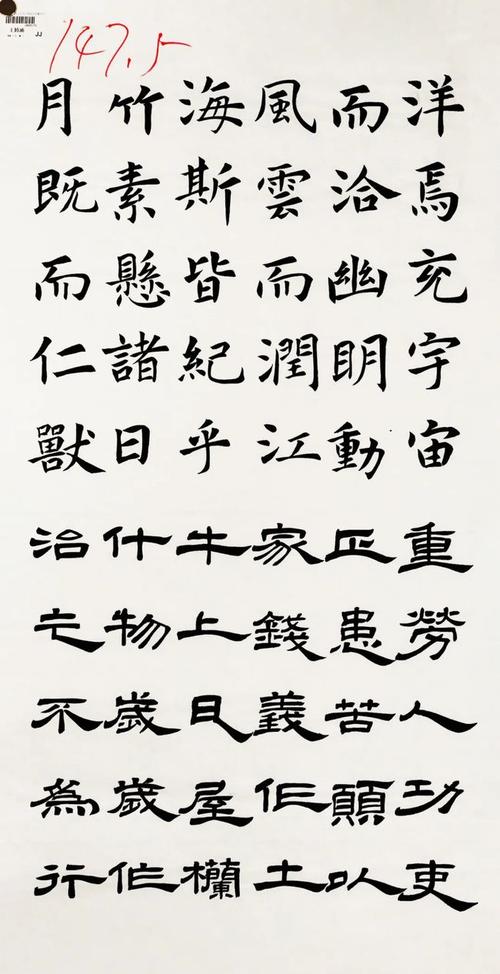 147.5
JJ
洋焉充宇宙
而洽幽明動
風雲而潤江
海斯皆紀乎
竹素懸諸日
月既而仁獸
重勞人功吏
正患苦願以
家錢義作土
牛上瓦屋欄
什物歲歲作
治乞不為行